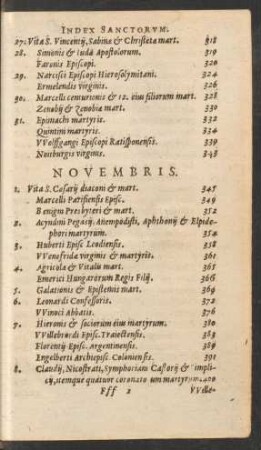 INDEX SANCTORVM.
27. Vita S. Vincentij, Sabinæ & Christetæ mart. 318
28. Simonis & Iudæ Apostolorum. 319
Faronis Episcopi. 320
29. Narcissi Episcopi Hierosolymitani. 324
Ermelendis virginis. 326
30. Marcelli centurionis & 12. eius filiorum mart. 328
Zenobij & Zenobiæ mart. 330
31. Epimachi martyris. 332
Quintini martyris. 334
VVolffgangi Episcopi Ratisponensis. 339
Notburgis virginis. 343
NOVEMBRIS.
1. Vita S. Cæsarij diaconi & mart. 347
Marcelli Parisiensis Episc. 349
Benigni Presbyteri & mart. 352
2. Acyndini Pegasij Anempodisti, Aphthonij & Elpide-
phori martyrum. 354
3. Huberti Episc Leodiensis. 358
VVenefridæ virginis & martyris. 361
4. Agricolæ & Vitalis mart. 365
Emerici Hungarorum Regis Filij. 365
5. Galationis & Epistemis mart. 369
6. Leonardi Confessoris. 372
VVinoci Abbatis. 376
7. Hieronis & sociorum eius martyrum. 380
VVillebrordi Episc. Traiectensis. 383
Florentij Episc. Argentinensis. 389
Engelberti Archiepisc. Coloniensis. 391
8. Claudij, Nicostrati, Symphoriani Castorij & Simpli-
cij, itemque quatuor coronatorum martyrum. 400
Fff 2 VVille-